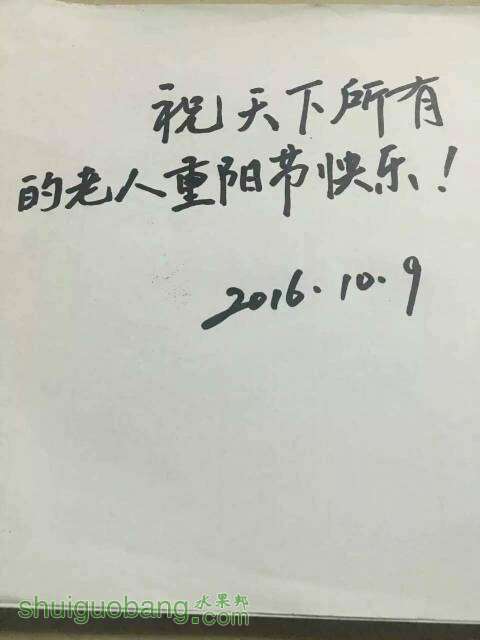 祝天下所有
的老人重阳节快乐！
2016.10.9
水果邦
shuiguobang.com